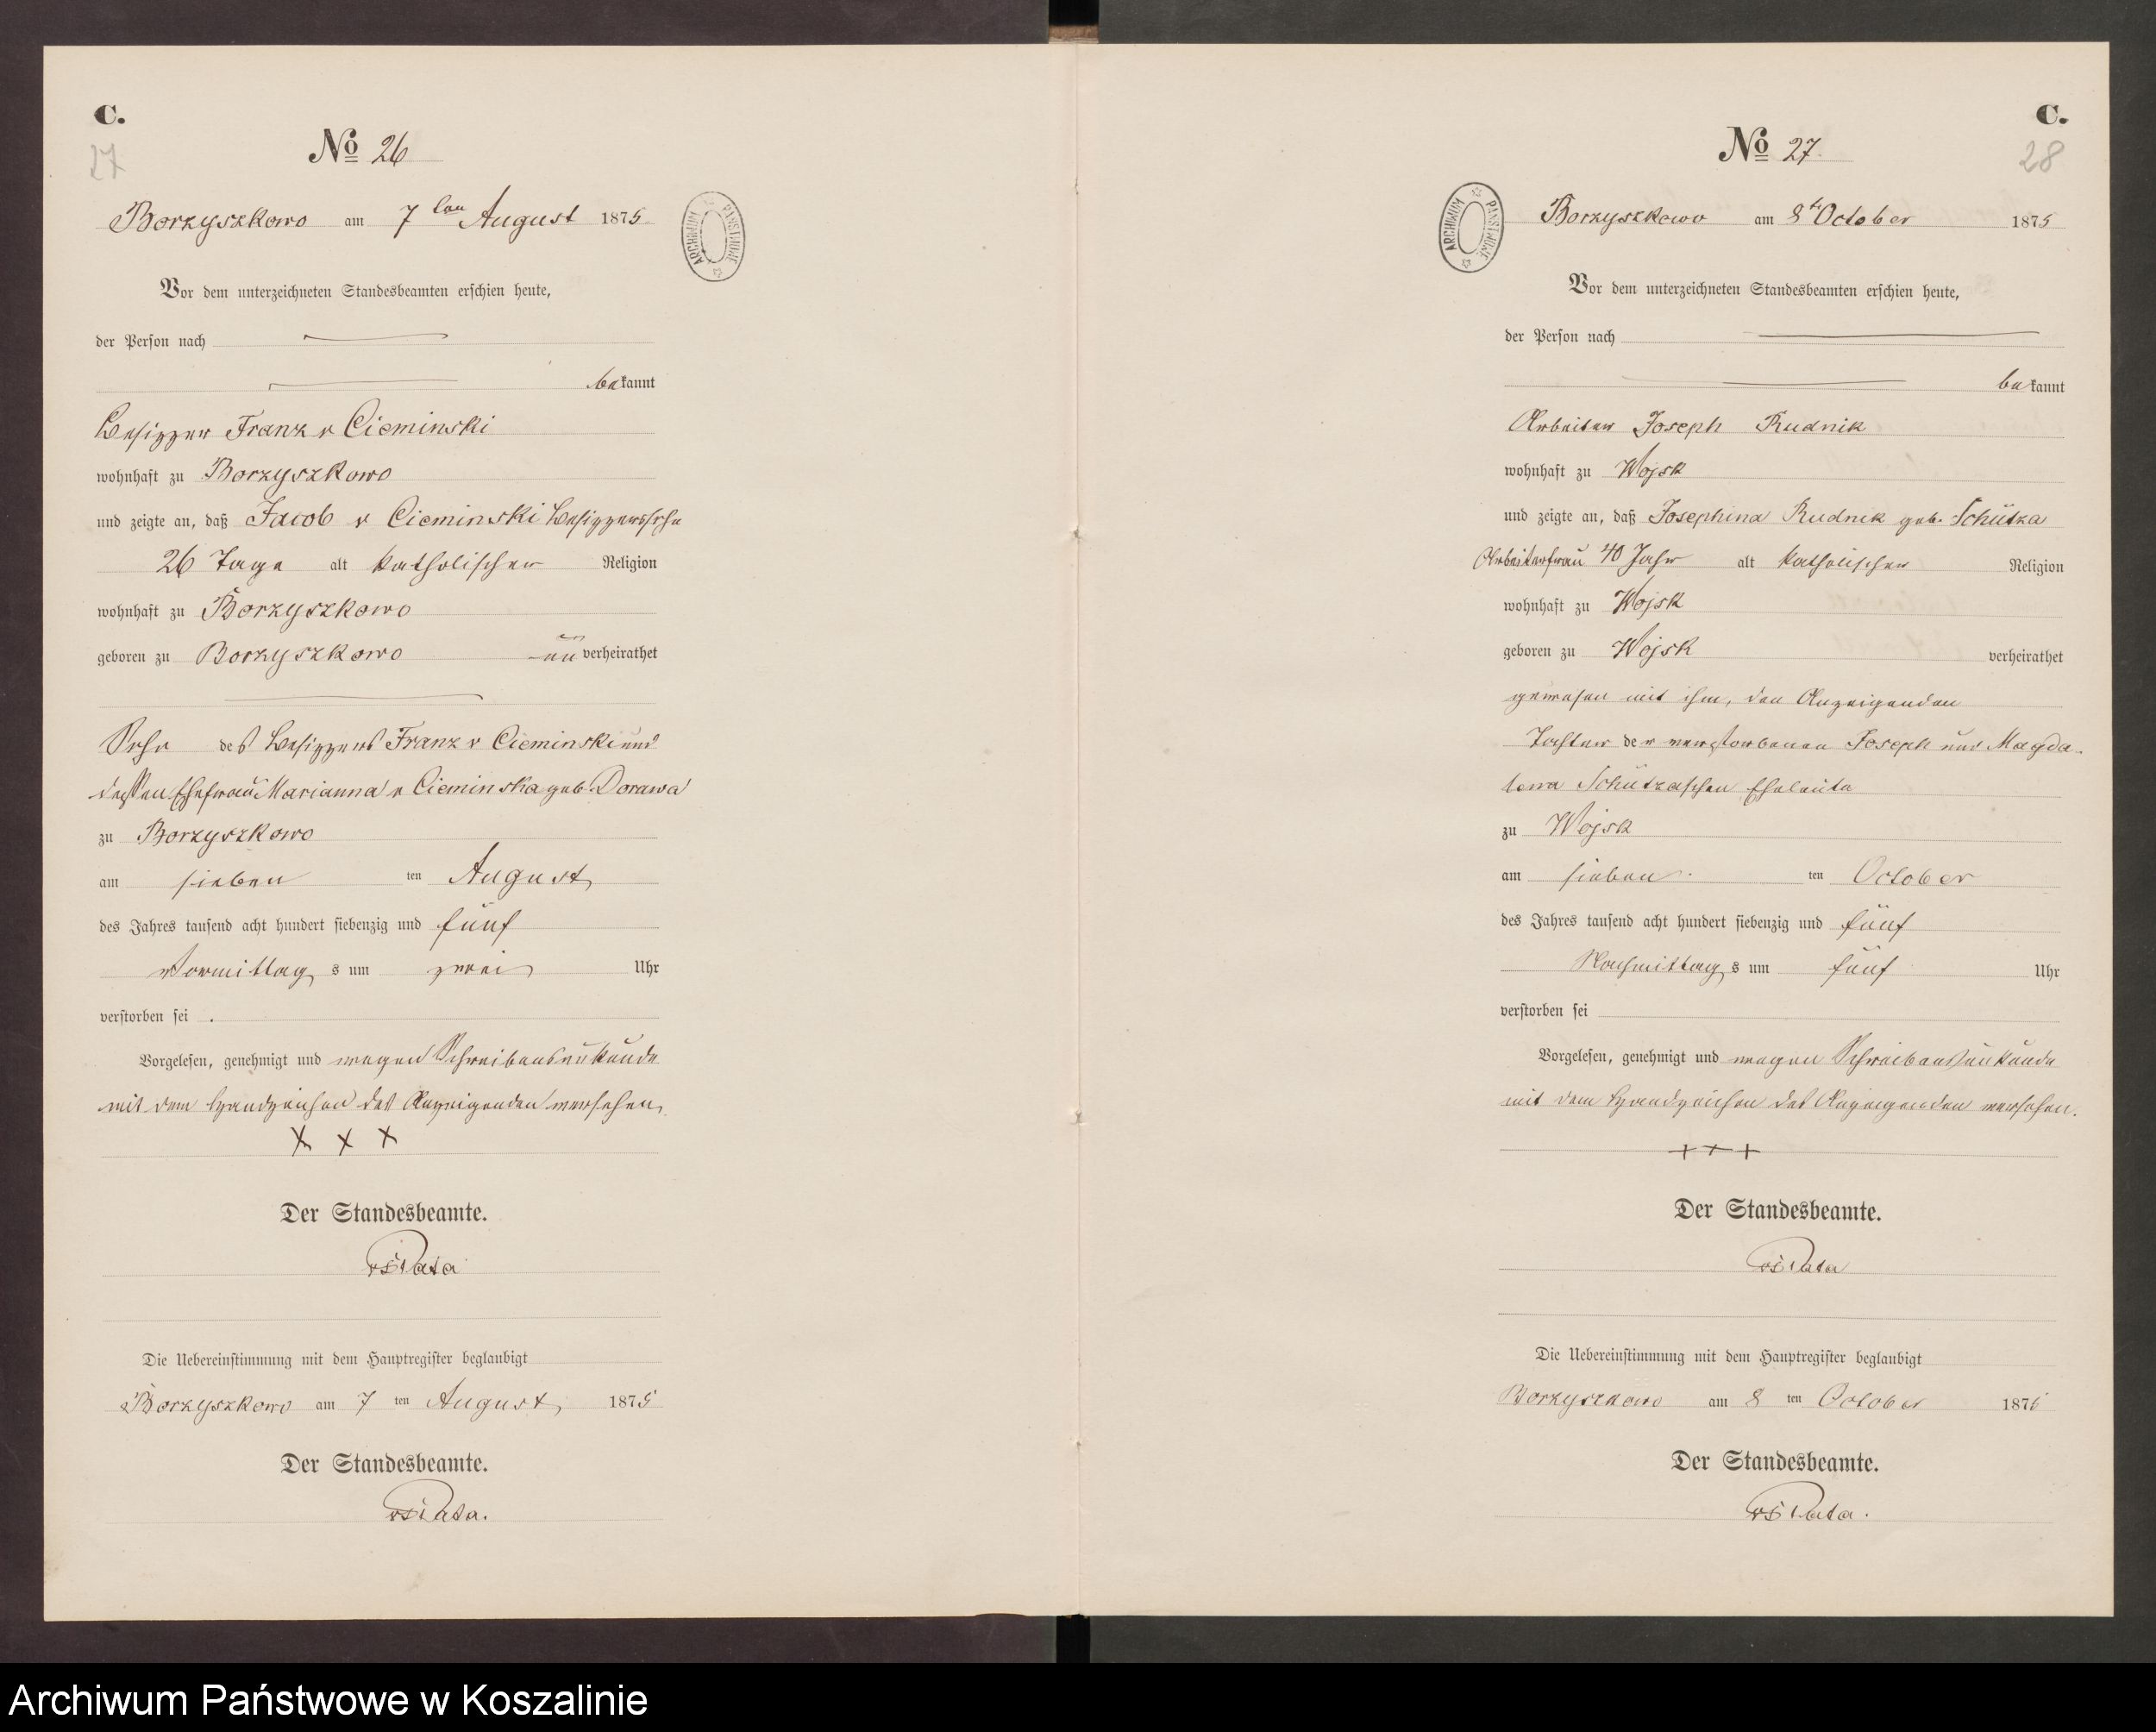 C.
27
No 26
Borzyszkowo am 7 ten August 1875
ARCHIWUM PAŃSTWOWE
Vor dem unterzeichneten Standesbeamten erschien heute,
der Person nach
bekannt
Besitzer Franz v Cieminski
wohnhaft zu Borzyszkowo
und zeigte an, daß Jacob v Cieminski Besitzerssohn
26 Tage alt katholischer Religion
wohnhaft zu Borzyszkowo
geboren zu Borzyszkowo unverheirathet
Sohn des Besitzers Franz v Cieminski und
dessen Ehefrau Marianna v Cieminska geb. Dorawa
zu Borzyszkowo
am sieben ten August
des Jahres tausend acht hundert siebenzig und fünf
Vormittags um zwei Uhr
verstorben sei .
Vorgelesen, genehmigt und wegen Schreibensunkunde
mit dem Handzeichen des Anzeigenden versehen.
x x x
Der Standesbeamte.
Die Uebereinstimmung mit dem Hauptregister beglaubigt
Borzyszkowo am 7 ten August 1875
Der Standesbeamte.
C.
28
No 27.
Borzyszkowo am 8t October 1875
ARCHIWUM PAŃSTWOWE
Vor dem unterzeichneten Standesbeamten erschien heute,
der Person nach
bekannt
Arbeiter Joseph Rudnik
wohnhaft zu Wojsk
und zeigte an, daß Josephina Rudnik geb. Schütza
Arbeiterfrau 40 Jahr alt katholischer Religion
wohnhaft zu Wojsk
geboren zu Wojsk verheirathet
gewesen mit ihm, den Anzeigenden
Tochter der verstorbenen Joseph und Magda-
lena Schützaschen Eheleute
zu Wojsk
am sieben ten October
des Jahres tausend acht hundert siebenzig und fünf
Nachmittags um fünf Uhr
verstorben sei
Vorgelesen, genehmigt und wegen Schreibensunkunde
mit dem Handzeichen des Anzeigenden versehen.
+ + +
Der Standesbeamte.
Die Uebereinstimmung mit dem Hauptregister beglaubigt
Borzyszkowo am 8 ten October 1875
Der Standesbeamte.
Archiwum Państwowe w Koszalinie